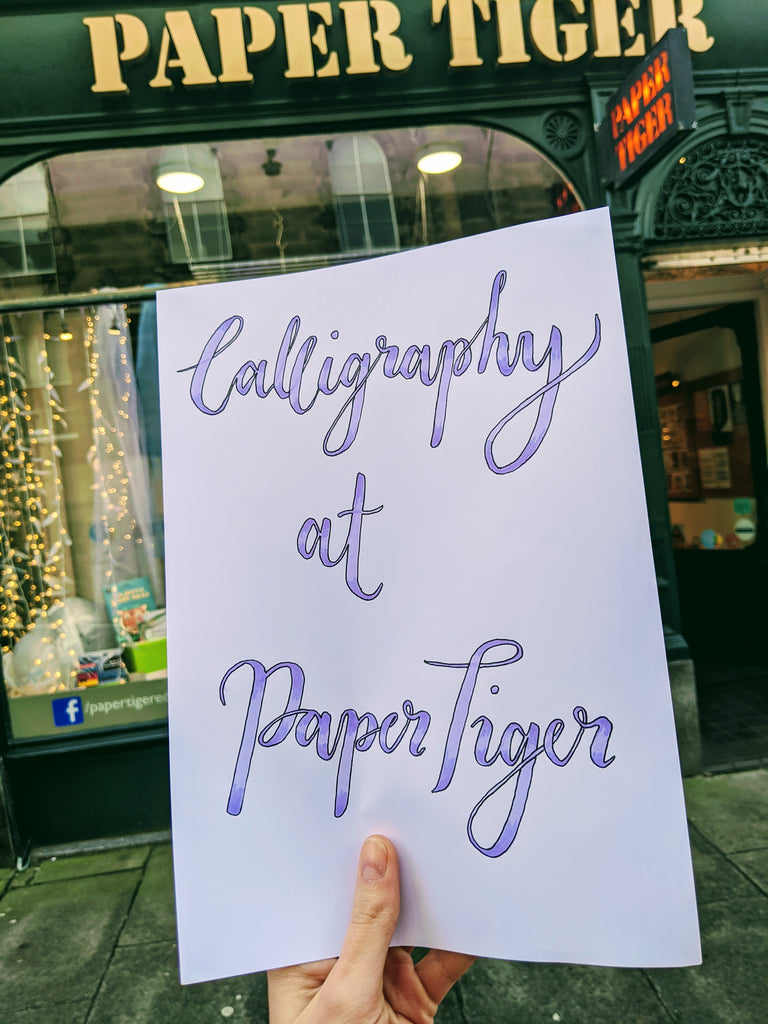 PAPER TIGER
PAPER
TIGER
Calligraphy
at
Paper Tiger
f /papertigered